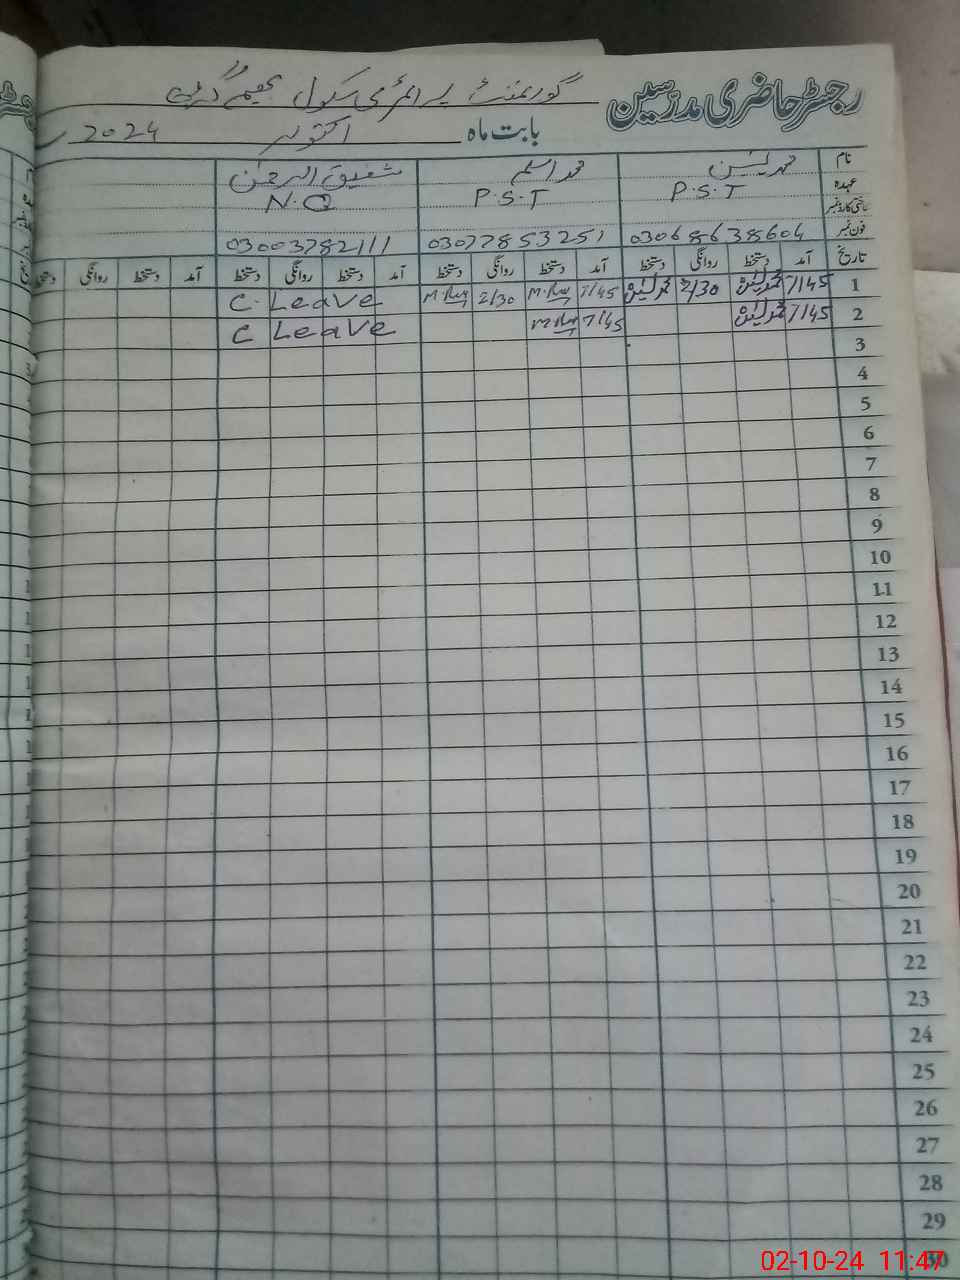 رجسٹر حاضری مدرسین گورنمنٹ پرائمری سکول
بابت ماہ اکتوبر 2024
نام محمد یٰسین محمد اسلم شفیق الرحمٰن
عہدہ P.S.T P.S.T N.Q
شناختی کارڈ نمبر
فون نمبر 03068638604 03077853251 03003782111
تاریخ آمد دستخط روانگی دستخط آمد دستخط روانگی دستخط آمد دستخط روانگی دستخط آمد دستخط روانگی دستخط
1 7/45 محمد یٰسین 2/30 محمد یٰسین 7/45 2/30 C. Leave
2 7/45 محمد یٰسین 7/45 C Leave
3
4
5
6
7
8
9
10
11
12
13
14
15
16
17
18
19
20
21
22
23
24
25
26
27
28
29
30
02-10-24 11:47